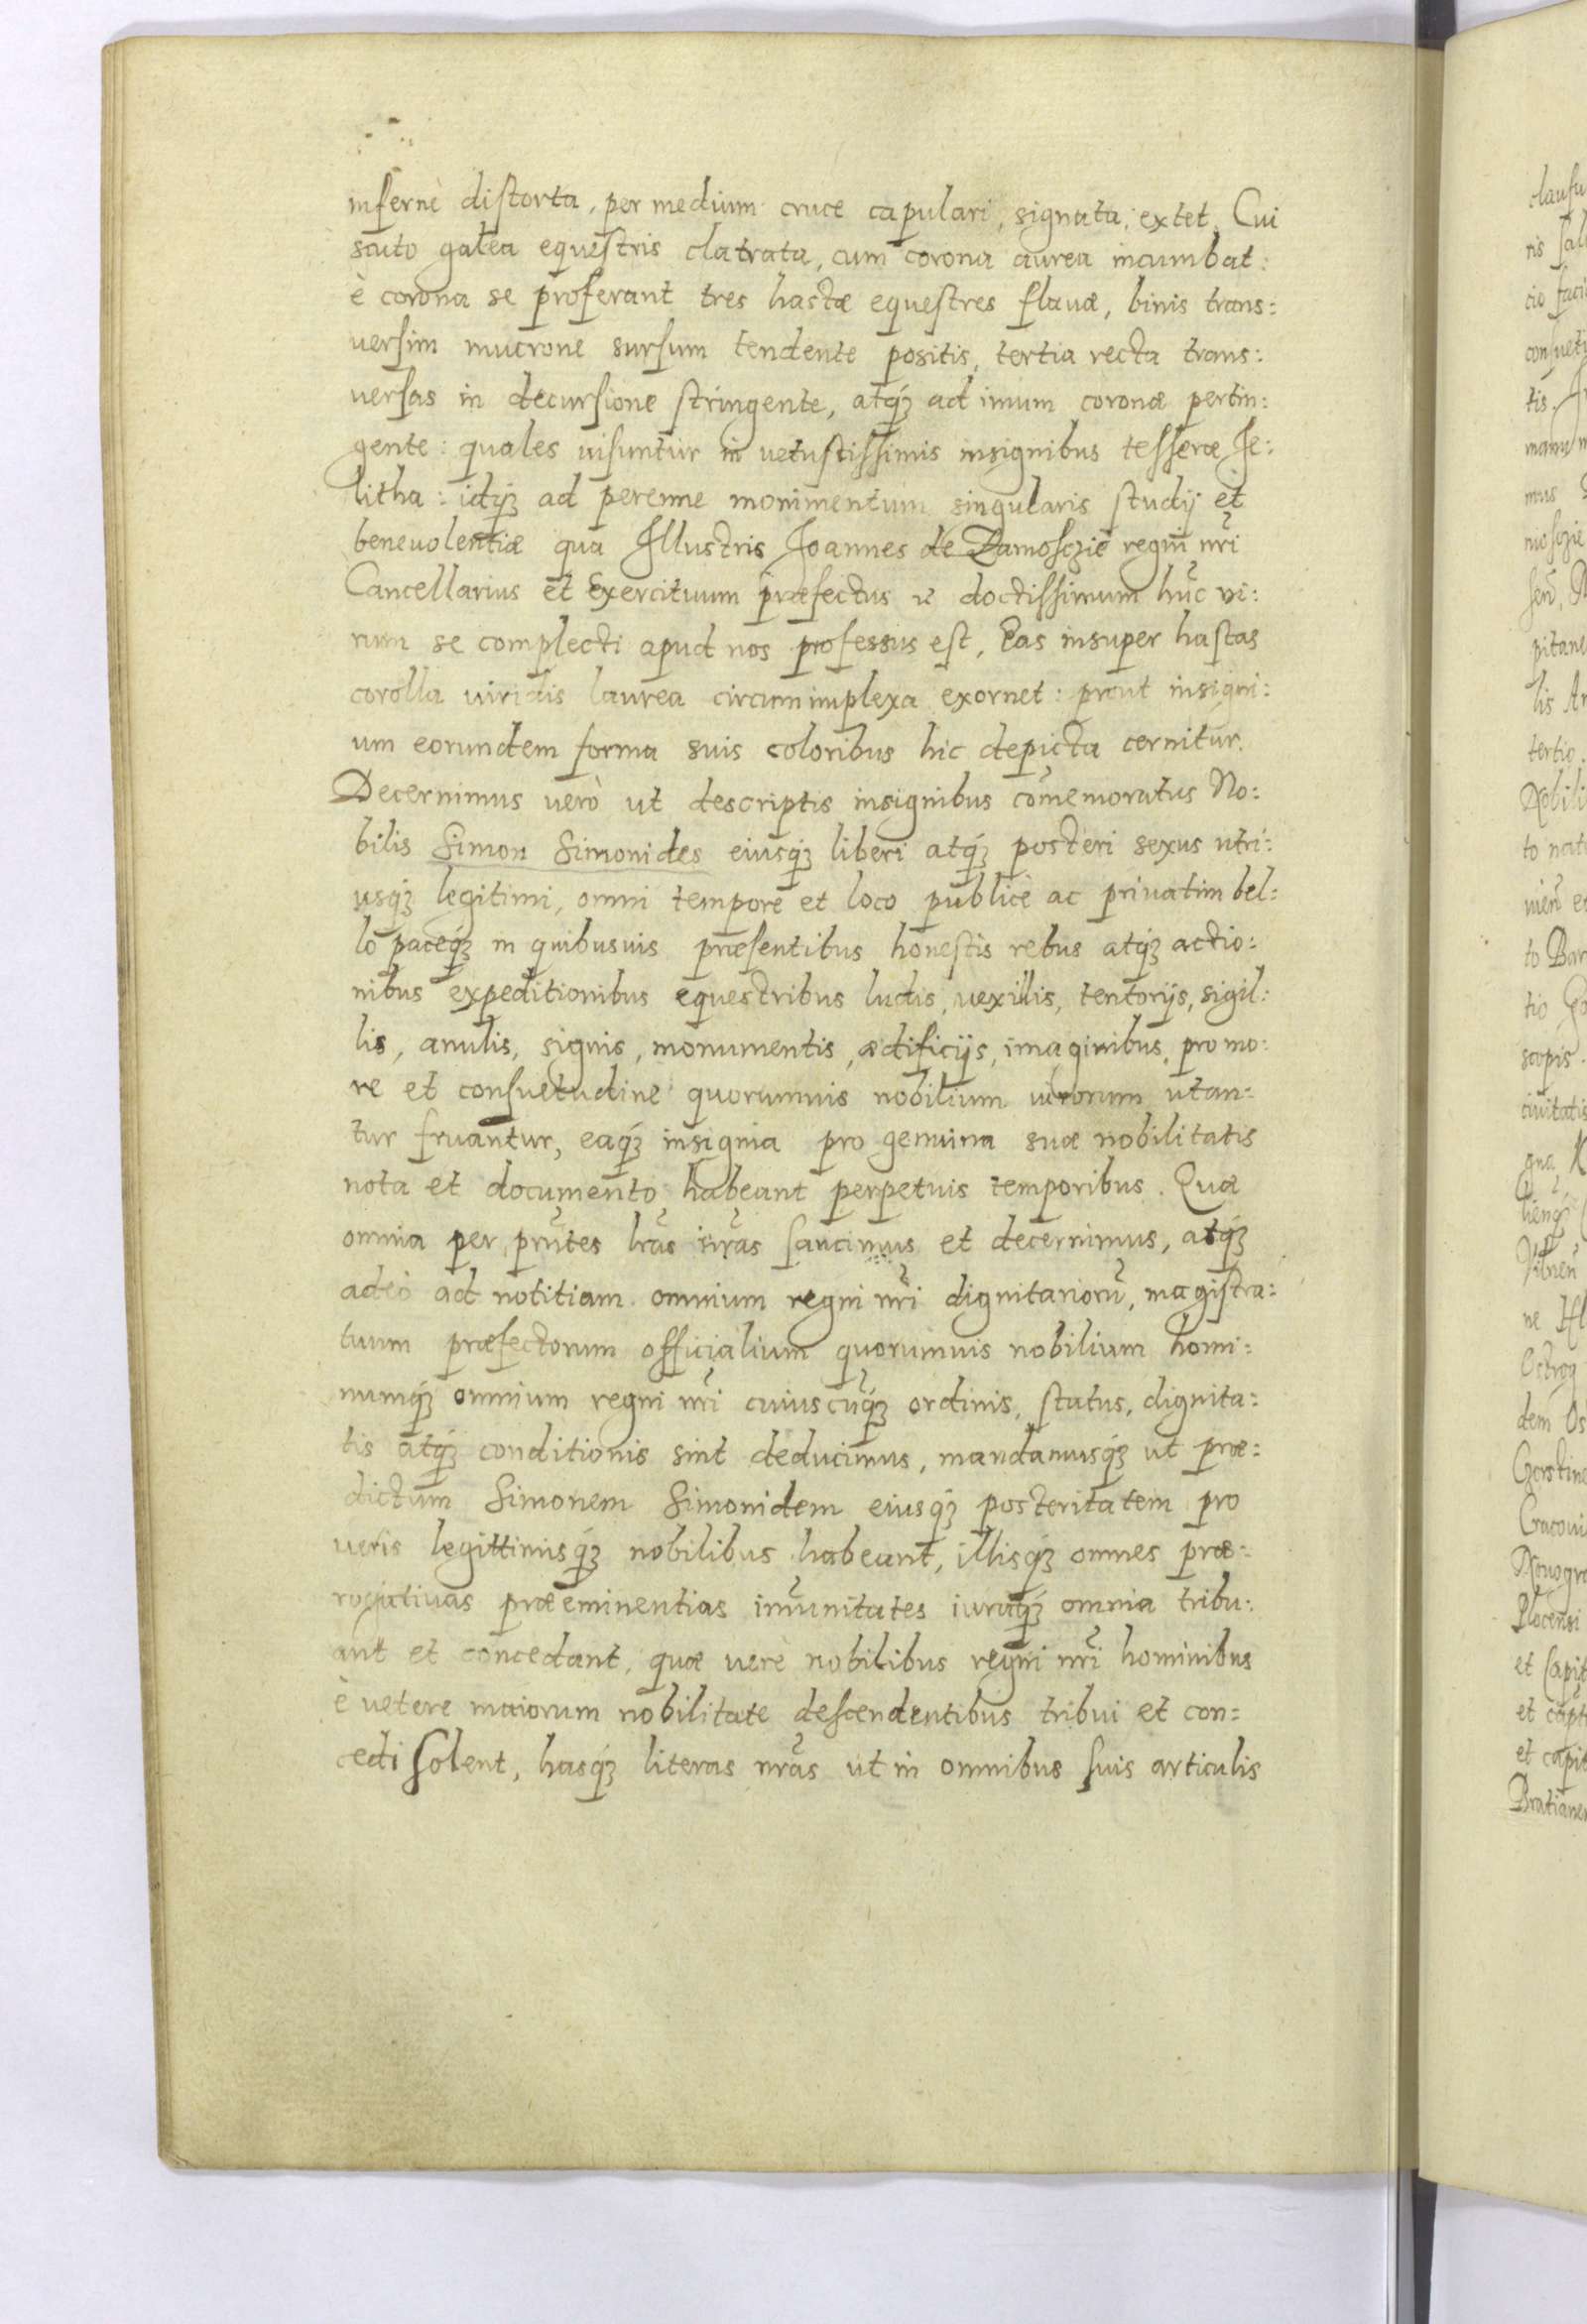 infernè distorta, per medium cruce capulari, signata, extet. Cui
scuto galea equestris clatrata, cum corona aurea incumbat:
è corona se proferant tres hastæ equestres flauæ, binis trans:
uersim mucrone sursum tendente positis, tertia recta trans:
uersas in decursione stringente, atq́ꝫ ad imum coronæ pertin:
gente: quales uisuntur in uetustissimis insignibus tesseræ Je:
litha: idq́ꝫ ad perenne monimentum singularis studij et
beneuolentiæ qua Illustris Joannes de Zamoschie regni nr̃i
Cancellarius et Exercituum præfectus doctissimum hũc vi:
rum se complecti apud nos professus est, Eas insuper hastas
corolla uiridis laurea circumimplexa exornet: prout insigni:
um eorundem forma suis coloribus hic depicta cernitur.
Decernimus uerò ut descriptis insignibus cõmemoratus No:
bilis Simon Simonides eiusq́ꝫ liberi atq́ꝫ posteri sexus utri:
usq́ꝫ legitimi, omni tempore et loco publicè ac priuatim bel:
lo paceq́ꝫ in quibusuis præsentibus honestis rebus atq́ꝫ actio:
nibus expeditionibus equestribus ludis, uexillis, tentorijs, sigil:
lis, anulis, signis, monumentis, ædificijs, imaginibus, pro mo:
re et consuetudine quorumuis nobilium uirorum utan=
tur fruantur, eaq́ꝫ insignia pro genuina suæ nobilitatis
nota et documento habeant perpetuis temporibus. Quæ
omnia per pr̃ntes lr̃as nr̃as sancimus et decernimus, atq́ꝫ
adeò ad notitiam omnium regni nr̃i dignitariorũ, magistra:
tuum præfectorum officialium quorumuis nobilium homi:
numq́ꝫ omnium regni nr̃i cuiuscũq́ꝫ ordinis, status, dignita:
tis atq́ꝫ conditionis sint deducimus, mandamusq́ꝫ ut præ:
dictum Simonem Simonidem eiusq́ꝫ posteritatem pro
ueris legittimisq́ꝫ nobilibus habeant, illisq́ꝫ omnes præ:
rogatiuas præeminentias imũnitates iuraq́ꝫ omnia tribu:
ant et concedant, quæ uerè nobilibus regni nr̃i hominibus
è uetere maiorum nobilitate descendentibus tribui et con=
cedi solent, hasq́ꝫ literas nr̃as ut in omnibus suis articulis